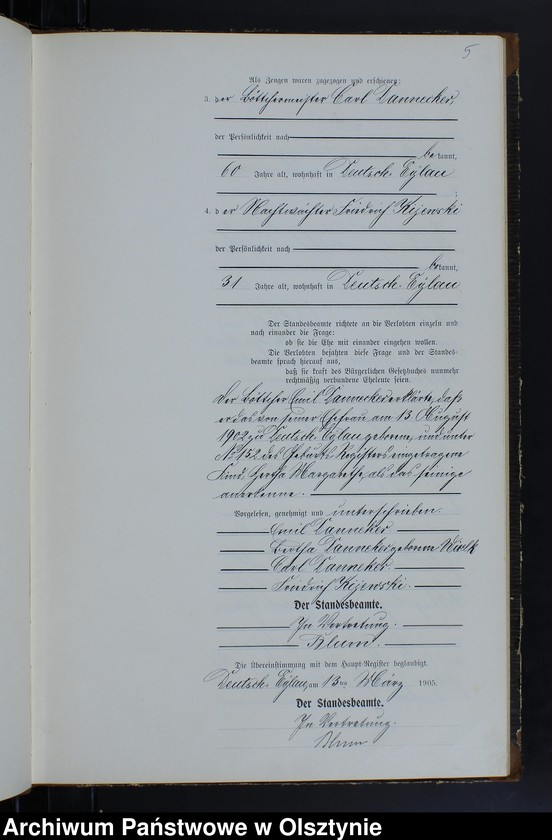 5
Als Zeugen waren zugezogen und erschienen:
3. der Böttchermeister Carl Dannecker,
der Persönlichkeit nach
bekannt,
60 Jahre alt, wohnhaft in Deutsch. Eylau
;
4. der Nachtwächter Friedrich Kijewski
der Persönlichkeit nach
bekannt,
31 Jahre alt, wohnhaft in Deutsch. Eylau
Der Standesbeamte richtete an die Verlobten einzeln und
nach einander die Frage:
ob sie die Ehe mit einander eingehen wollen.
Die Verlobten bejahten diese Frage und der Standes-
beamte sprach hierauf aus,
daß sie kraft des Bürgerlichen Gesetzbuches nunmehr
rechtmäßig verbundene Eheleute seien.
Der Böttcher Emil Dannecker erklärte, daß
er das von seiner Ehefrau am 13. August
1902 zu Deutsch. Eylau geborene, und unter
No 152 des Geburts Registers eingetragene
Kind, Hertha Margarethe, als das seinige
anerkenne.
Vorgelesen, genehmigt und unterschrieben.
Emil Danneker
Bertha Danneker geborene
Carl Danneker.
Friedrich Kijewski.
Der Standesbeamte.
In Vertretung.
Blum.
Die Übereinstimmung mit dem Haupt-Register beglaubigt.
Deutsch. Eylau, am 13ten März 1905.
Der Standesbeamte.
In Vertretung.
Blum
Archiwum Państwowe w Olsztynie